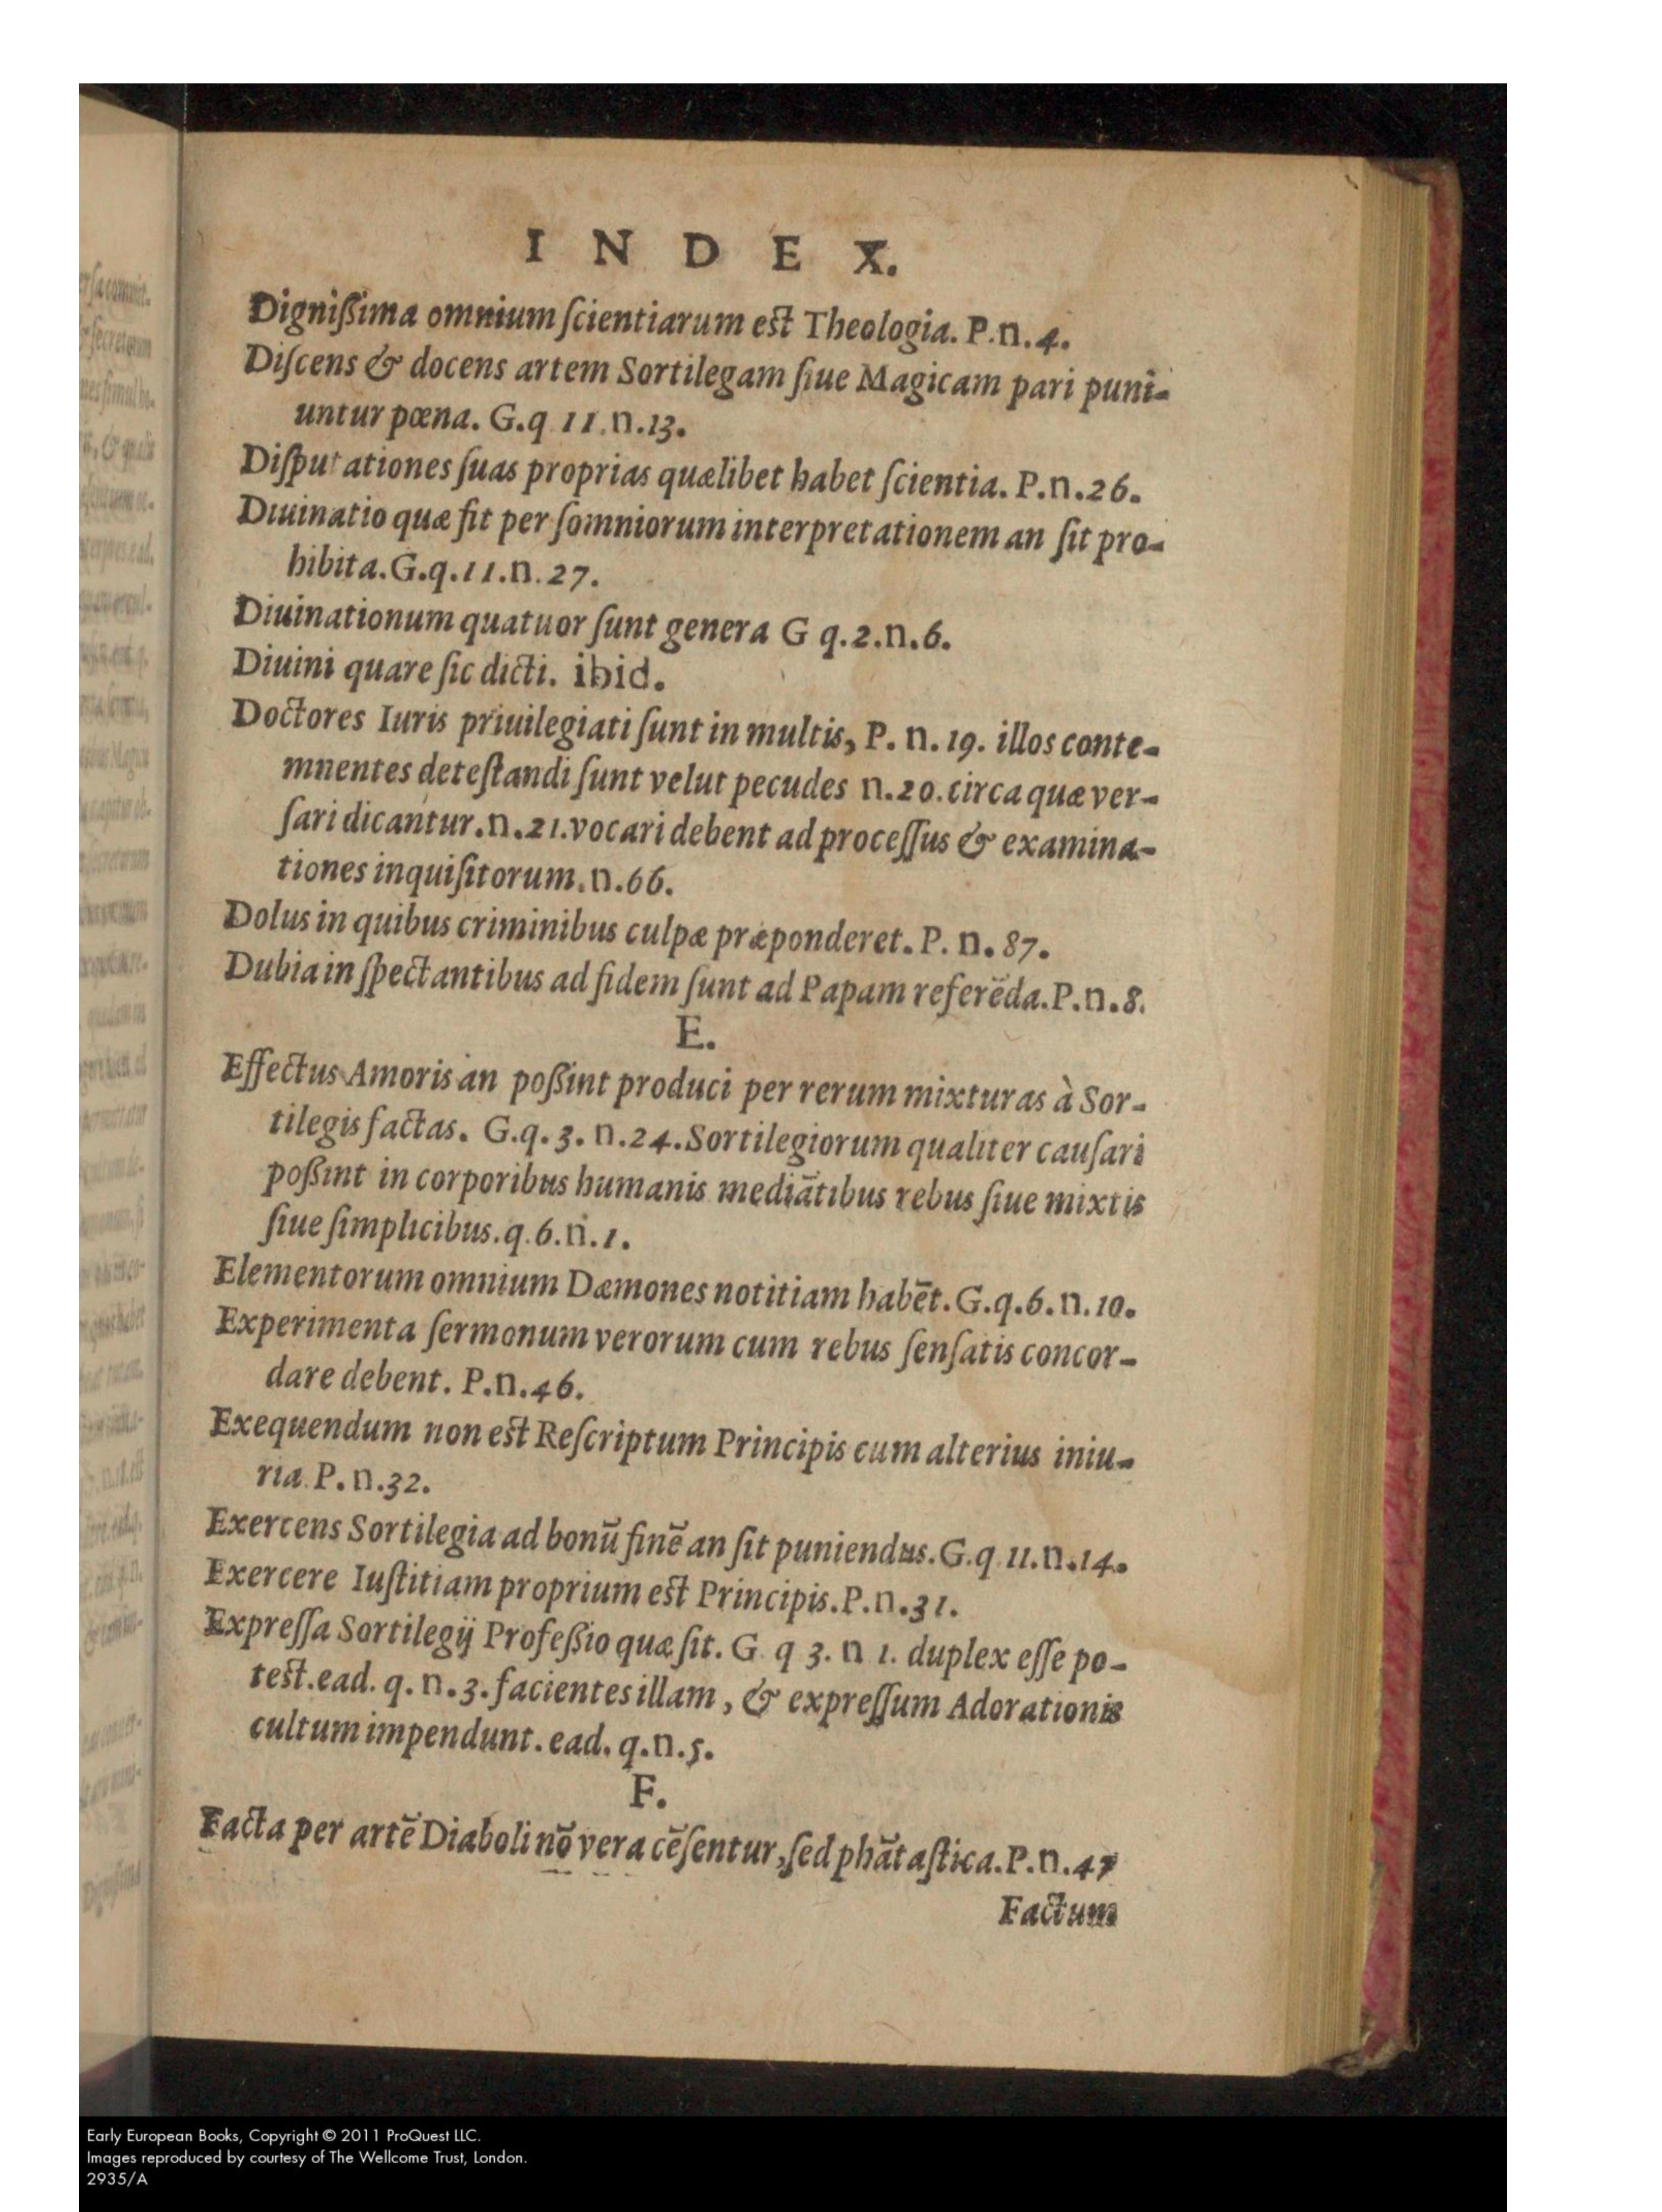 I N D E X.
Digniſſima omnium ſcientiarum est Theologia. P.n.4.
Diſcens & docens artem Sortilegam ſiue Magicam pari puni-
untur pœna. G.q 11.n.13.
Diſputationes ſuas proprias quælibet habet ſcientia. P.n.26.
Diuinatio quæ fit per ſomniorum interpretationem an ſit pro-
hibita.G.q.11.n.27.
Diuinationum quatuor ſunt genera G q.2.n.6.
Diuini quare ſic dicti. ibid.
Doctores Iuris priuilegiati ſunt in multis, P. n. 19. illos conte-
mnentes deteſtandi ſunt velut pecudes n.20.circa quæ ver-
ſari dicantur.n.21.vocari debent ad proceſſus & examina-
tiones inquiſitorum.n.66.
Dolus in quibus criminibus culpæ præponderet.P. n.87.
Dubia in ſpectantibus ad fidem ſunt ad Papam referēda.P.n.8.
E.
Effectus Amoris an poſſint produci per rerum mixturas à Sor-
tilegis factas. G.q.3. n.24.Sortilegiorum qualiter cauſari
poſſint in corporibus humanis mediātibus rebus ſiue mixtis
ſiue ſimplicibus.q.6.n.1.
Elementorum omnium Dæmones notitiam habēt.G.q.6.n.10.
Experimenta ſermonum verorum cum rebus ſenſatis concor-
dare debent. P.n.46.
Exequendum non est Reſcriptum Principis cum alterius iniu-
ria. P.n.32.
Exercens Sortilegia ad bonū finē an ſit puniendus.G.q 11.n.14.
Exercere Iuſtitiam proprium est Principis.P.n.31.
Expreſſa Sortilegij Profeſſio quæ ſit. G q 3. n 1. duplex eſſe po-
test.ead. q.n.3.facientes illam, & expreſſum Adorationis
cultum impendunt.ead. q.n.5.
F.
Facta per artē Diaboli nō vera cēſentur,ſed phātaſtica.P.n.47
Factum
Early European Books, Copyright © 2011 ProQuest LLC.
Images reproduced by courtesy of The Wellcome Trust, London.
2935/A